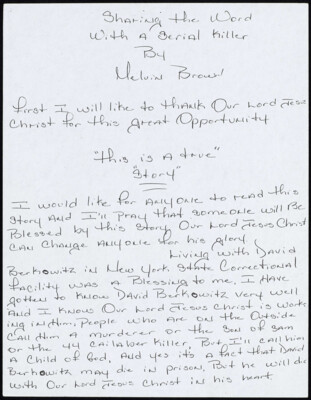 Sharing the Word
With A Serial Killer
By
Melvin Brown
First I will like to thank Our Lord Jesus
Christ for this great Opportunity
"this is A true"
"Story"
I would like for Anyone to read this
Story And I'll Pray that someone will Be
Blessed by this Story Our Lord Jesus Christ
CAN Change Anyone for his glory
Living with David
Berkowitz in New York State Correctional
Facility was A Blessing to me, I HAVE
gotten to Know David Berkowitz very well
And I Know Our Lord Jesus Christ is Work
ing in Him, People who Are on the Outside
Call him A murderer or the Son of Sam
or the 44 Caliaver Killer, But I'll call him
A Child of God, And yes it's A fact that David
Berkowitz may die in Prison, But he will die
With Our Lord Jesus Christ in his heart